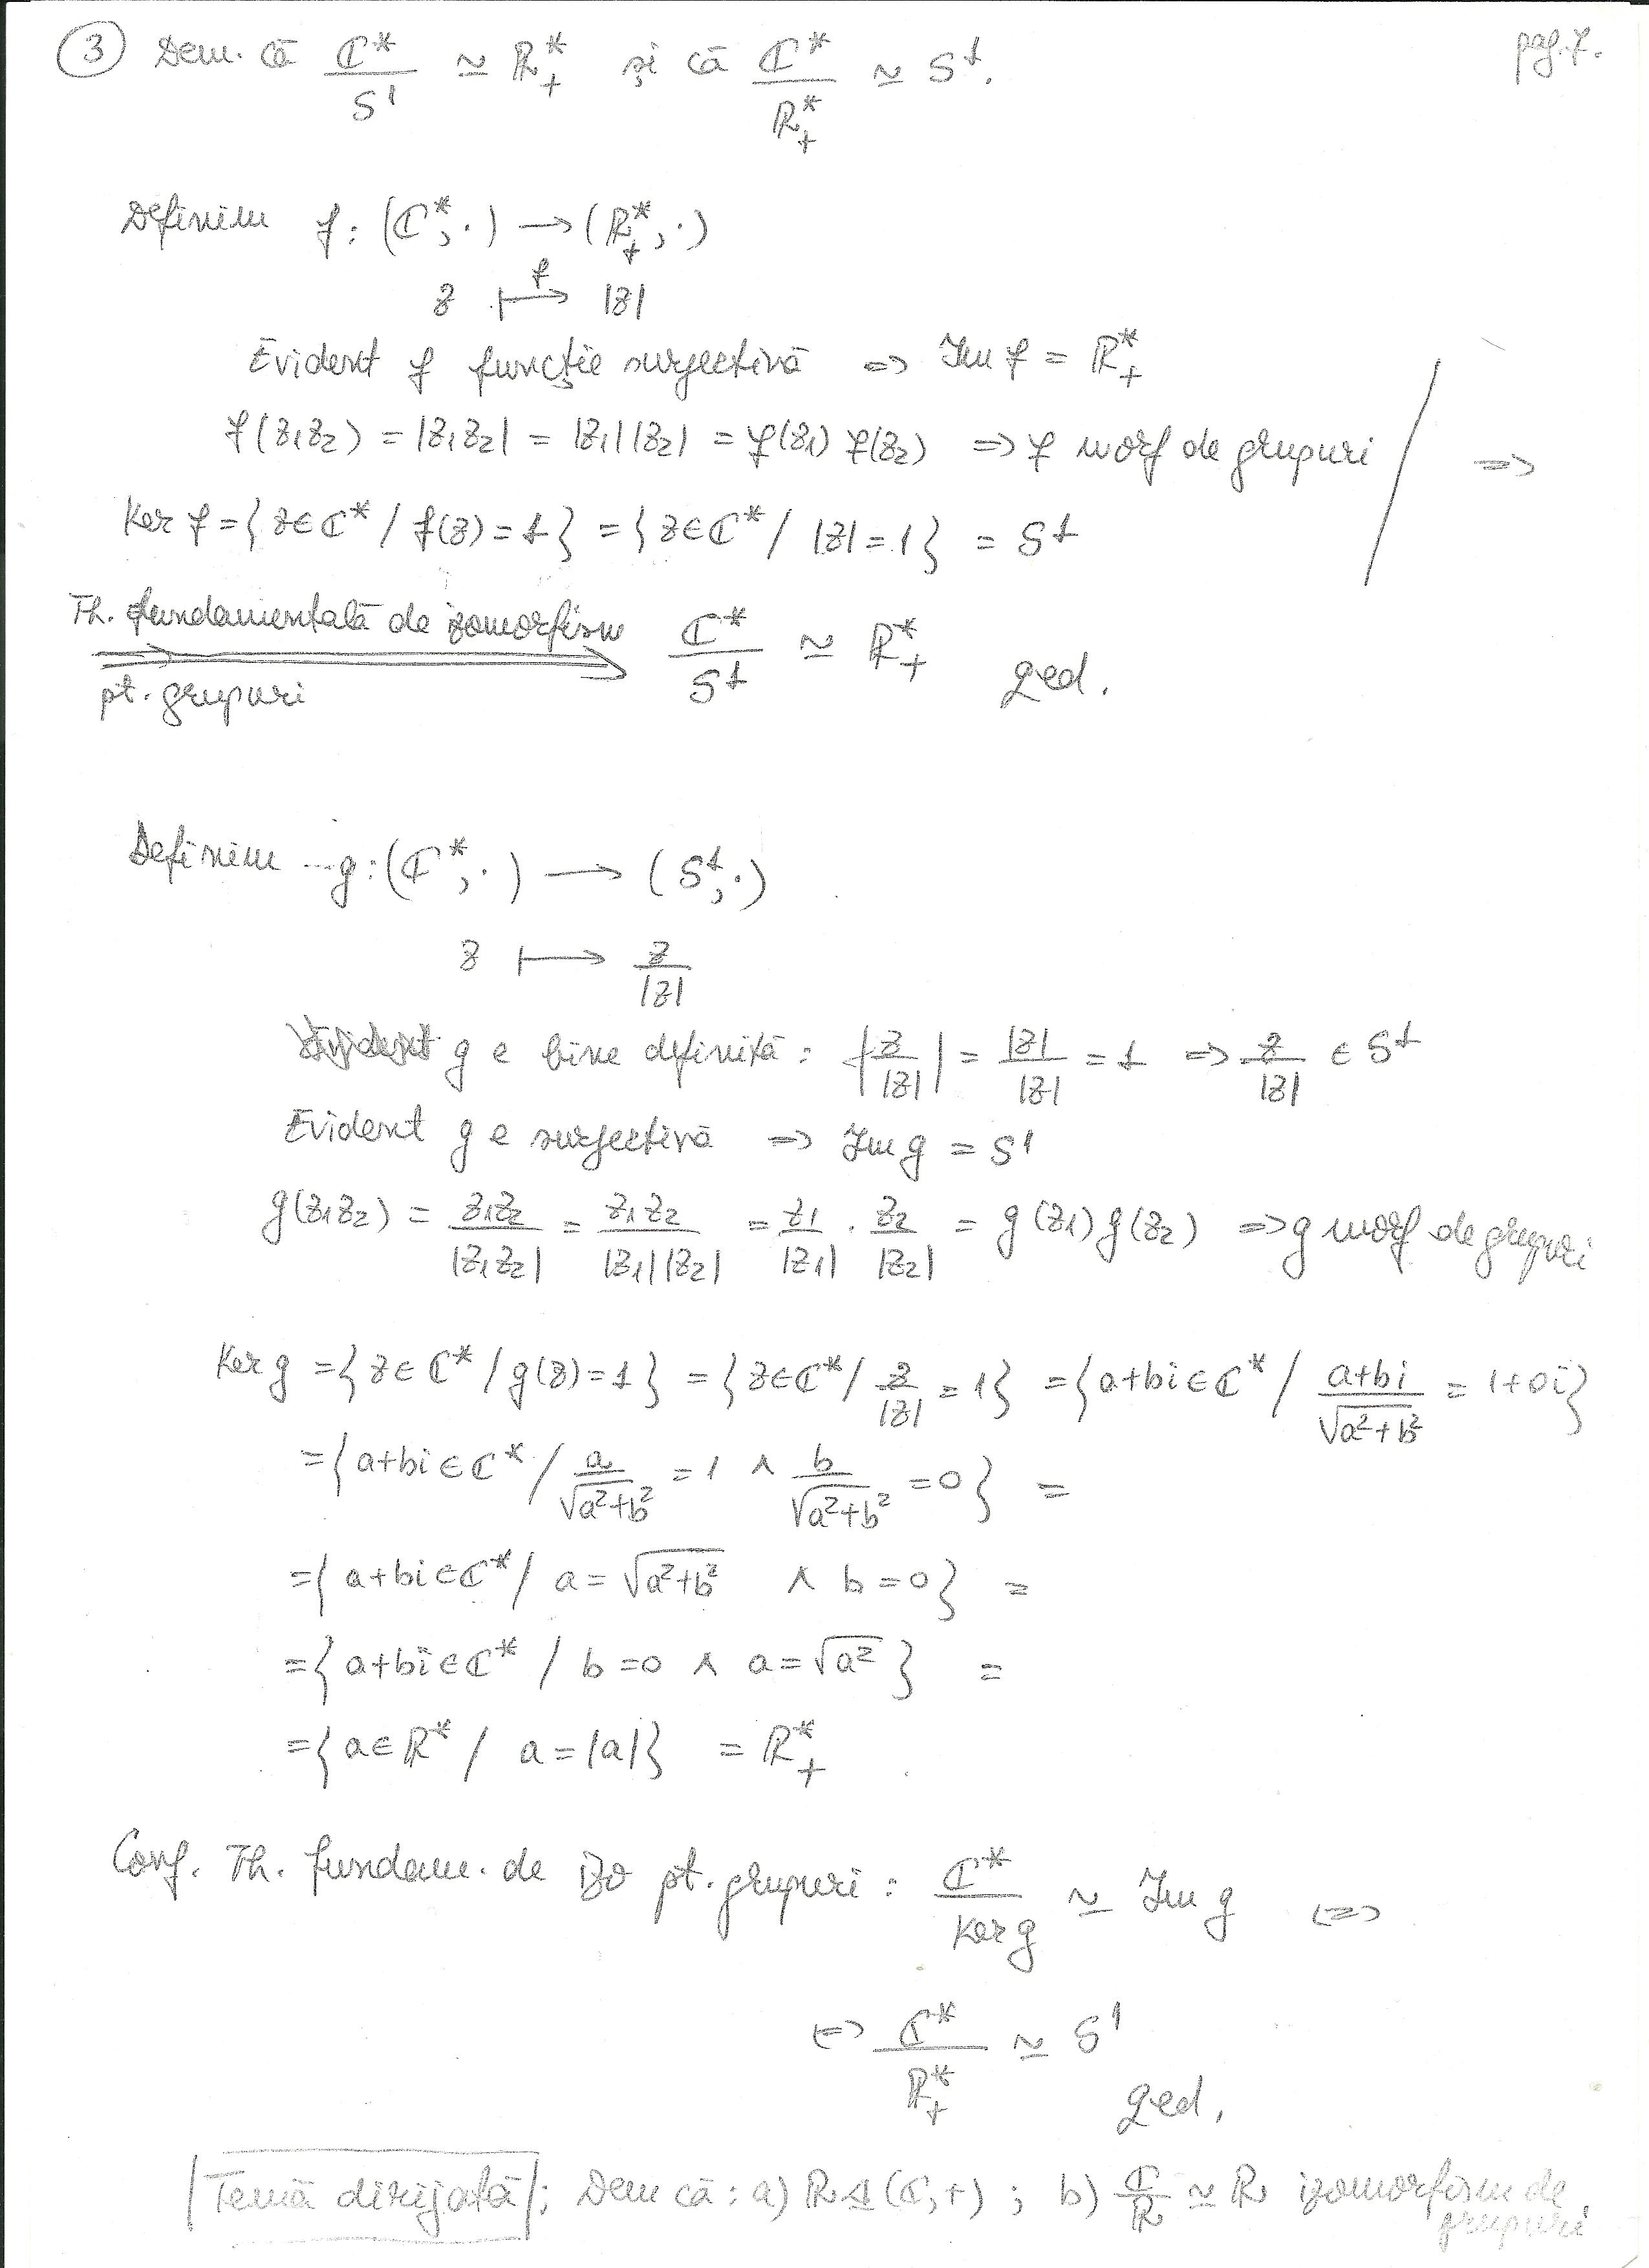 pag. 7.
③ Dem. că ℂ*/S¹ ≃ ℝ₊* și că ℂ*/ℝ₊* ≃ S¹.
Definim f: (ℂ*, ·) → (ℝ₊*, ·)
z ⟼ᶠ |z|
Evident f funcție surjectivă ⇒ Im f = ℝ₊*
f(z₁z₂) = |z₁z₂| = |z₁||z₂| = f(z₁) f(z₂) ⇒ f morf de grupuri ⇒
Ker f = {z∈ℂ* / f(z) = 1} = {z∈ℂ* / |z| = 1} = S¹
Th. fundamentală de izomorfism
pt. grupuri ⟹ ℂ*/S¹ ≃ ℝ₊* qed.
Definim g: (ℂ*, ·) → (S¹, ·)
z ⟼ z/|z|
g e bine definită: |z/|z|| = |z|/|z| = 1 ⇒ z/|z| ∈ S¹
Evident g e surjectivă ⇒ Im g = S¹
g(z₁z₂) = z₁z₂/|z₁z₂| = z₁z₂/|z₁||z₂| = z₁/|z₁| · z₂/|z₂| = g(z₁) g(z₂) ⇒ g morf de grupuri
Ker g = {z∈ℂ* / g(z) = 1} = {z∈ℂ* / z/|z| = 1} = {a+bi∈ℂ* / (a+bi)/√(a²+b²) = 1+0i}
= {a+bi∈ℂ* / a/√(a²+b²) = 1 ∧ b/√(a²+b²) = 0} =
= {a+bi∈ℂ* / a = √(a²+b²) ∧ b = 0} =
= {a+bi∈ℂ* / b = 0 ∧ a = √a²} =
= {a∈ℝ* / a = |a|} = ℝ₊*
Conf. Th. fundam. de izo pt. grupuri: ℂ*/Ker g ≃ Im g ⇔
⇔ ℂ*/ℝ₊* ≃ S¹
qed.
Temă dirijată: Dem că: a) ℝ ⊴ (ℂ,+); b) ℂ/ℝ ≃ ℝ izomorfism de
grupuri